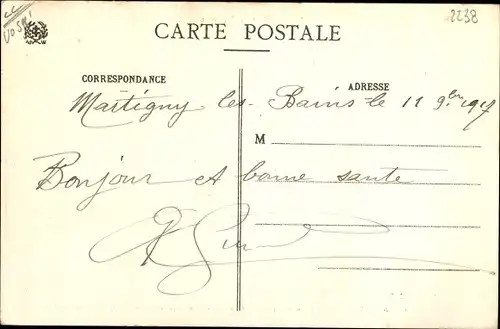 Vosges
2238
CARTE POSTALE
CORRESPONDANCE
ADRESSE
Martigny les-Bains le 11 9bre 1917
M
Bonjour et bonne sante